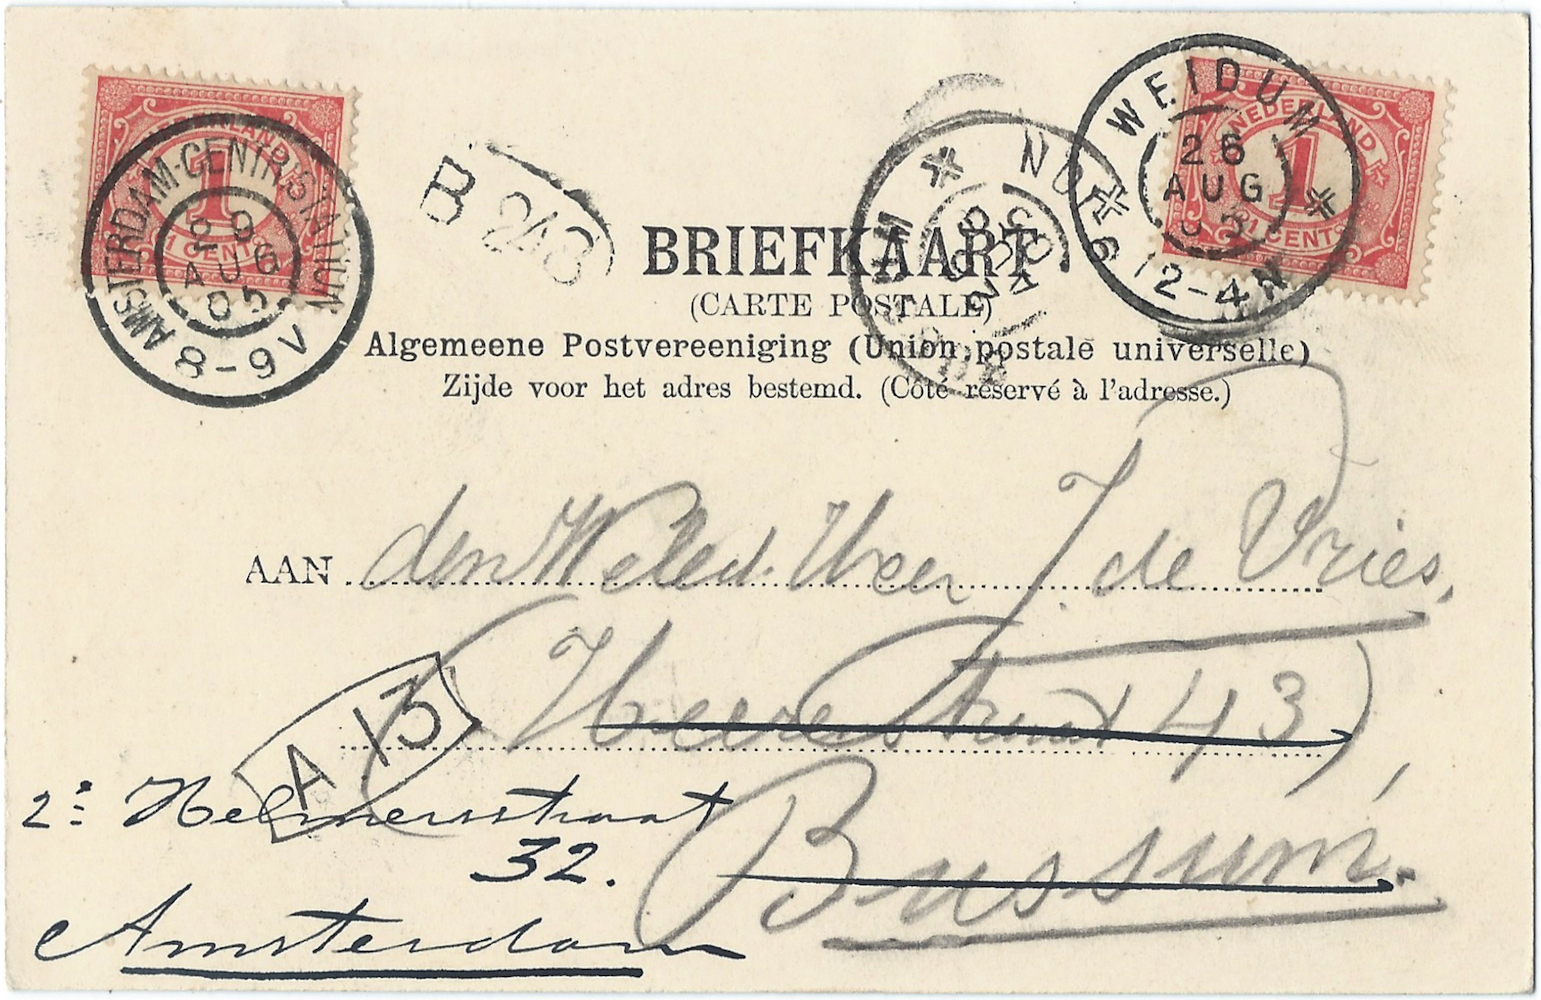 AMSTERDAM-CENTR.STATION
29
AUG
05
8-9V
1 CENT
B
WEIDUM
26
AUG
12-4N
NEDERLAND
1
1 CENT
BRIEFKAART
(CARTE POSTALE)
Algemeene Postvereeniging (Union postale universelle)
Zijde voor het adres bestemd. (Côté réservé à l'adresse.)
AAN den Weled. Heer J. de Vries,
Heerestraat 43
A 13
Bussum.
2e Helmersstraat
32.
Amsterdam